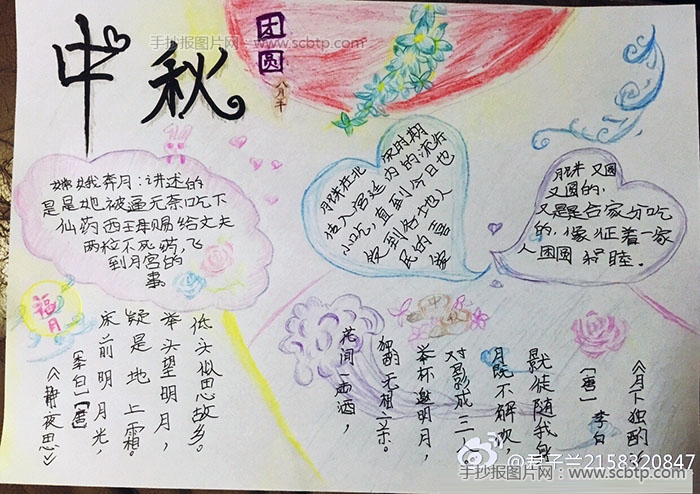 手抄报图片网 - www.scbtp.com
中秋
团圆
嫦娥奔月：讲述的
是是她被逼无奈吃下
仙药西王母赐给丈夫
两粒不死药，飞
到月宫的
事
月饼在北宋时期
传入宫廷内的流行
小吃，直到今日也
受到各地人
民的喜爱
月饼又圆
又圆的，
又是是合家分吃
的，像征着一家
人团圆和睦．
福月
《静夜思》
【李白】【唐】
床前明月光，
疑是地上霜。
举头望明月，
低头似思故乡。
《月下独酌》
【唐】李白
花间一壶酒，
独酌无相亲。
举杯邀明月，
对影成三
月既不解饮，
影徒随我身
君子兰2158320847
手抄报图片网 - www.scbtp.com